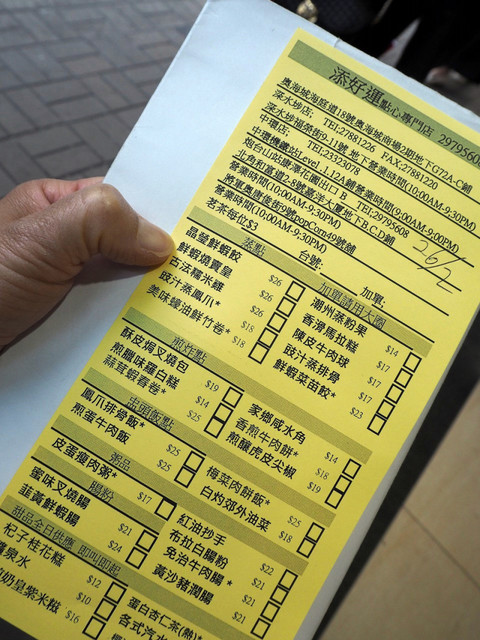 添好運點心專門店 29795608
奧海城海庭道18號奧海城商場2期地下G72A-C舖
深水埗店: TEL:27881226 FAX:27881220
深水埗福榮街9-11號 地下營業時間(10:00AM-9:30PM)
中環店: TEL:23323078 營業時間(9:00AM-9:00PM)
中環機鐵站Level 1,12A舖
炮台山站 出口 B TEL:29795608
北角和富道2-8號嘉洋大廈地下B,C,D舖
營業時間(10:00AM-9:30PM)
將軍奧唐俊街9號popCorn49號舖
營業時間(10:00AM-9:30PM)
茗茶每位$3
台號: 26/2 加單:
蒸點 加單請用大圈
晶瑩鮮蝦餃 $26 潮州蒸粉果 $14
鮮蝦燒賣皇 $26 香滑馬拉糕 $17
古法糯米雞 $26 陳皮牛肉球 $17
豉汁蒸鳳爪* $18 豉汁蒸排骨 $17
美味蠔油鮮竹卷* $18 鮮蝦菜苗餃* $23
煎炸點
酥皮焗叉燒包 $19 家鄉咸水角 $14
煎臘味蘿白糕 $14 香煎牛肉餅* $18
蒜茸蝦春卷* $25 煎釀虎皮尖椒 $19
盅頭飯點
鳳爪排骨飯* $25 梅菜肉餅飯* $25
煎蛋牛肉飯 $25 白灼郊外油菜 $18
粥品
皮蛋瘦肉粥* $17 紅油抄手 $22
腸粉 布拉白腸粉
蜜味叉燒腸 $21 免治牛肉腸* $21
韮黃鮮蝦腸 $24 黃沙豬潤腸 $21
甜品全日供應 即叫即起
杞子桂花糕 $12 蛋白杏仁茶(熱)*
泉水 $10 各式汽水
奶皇紫米糍 $16